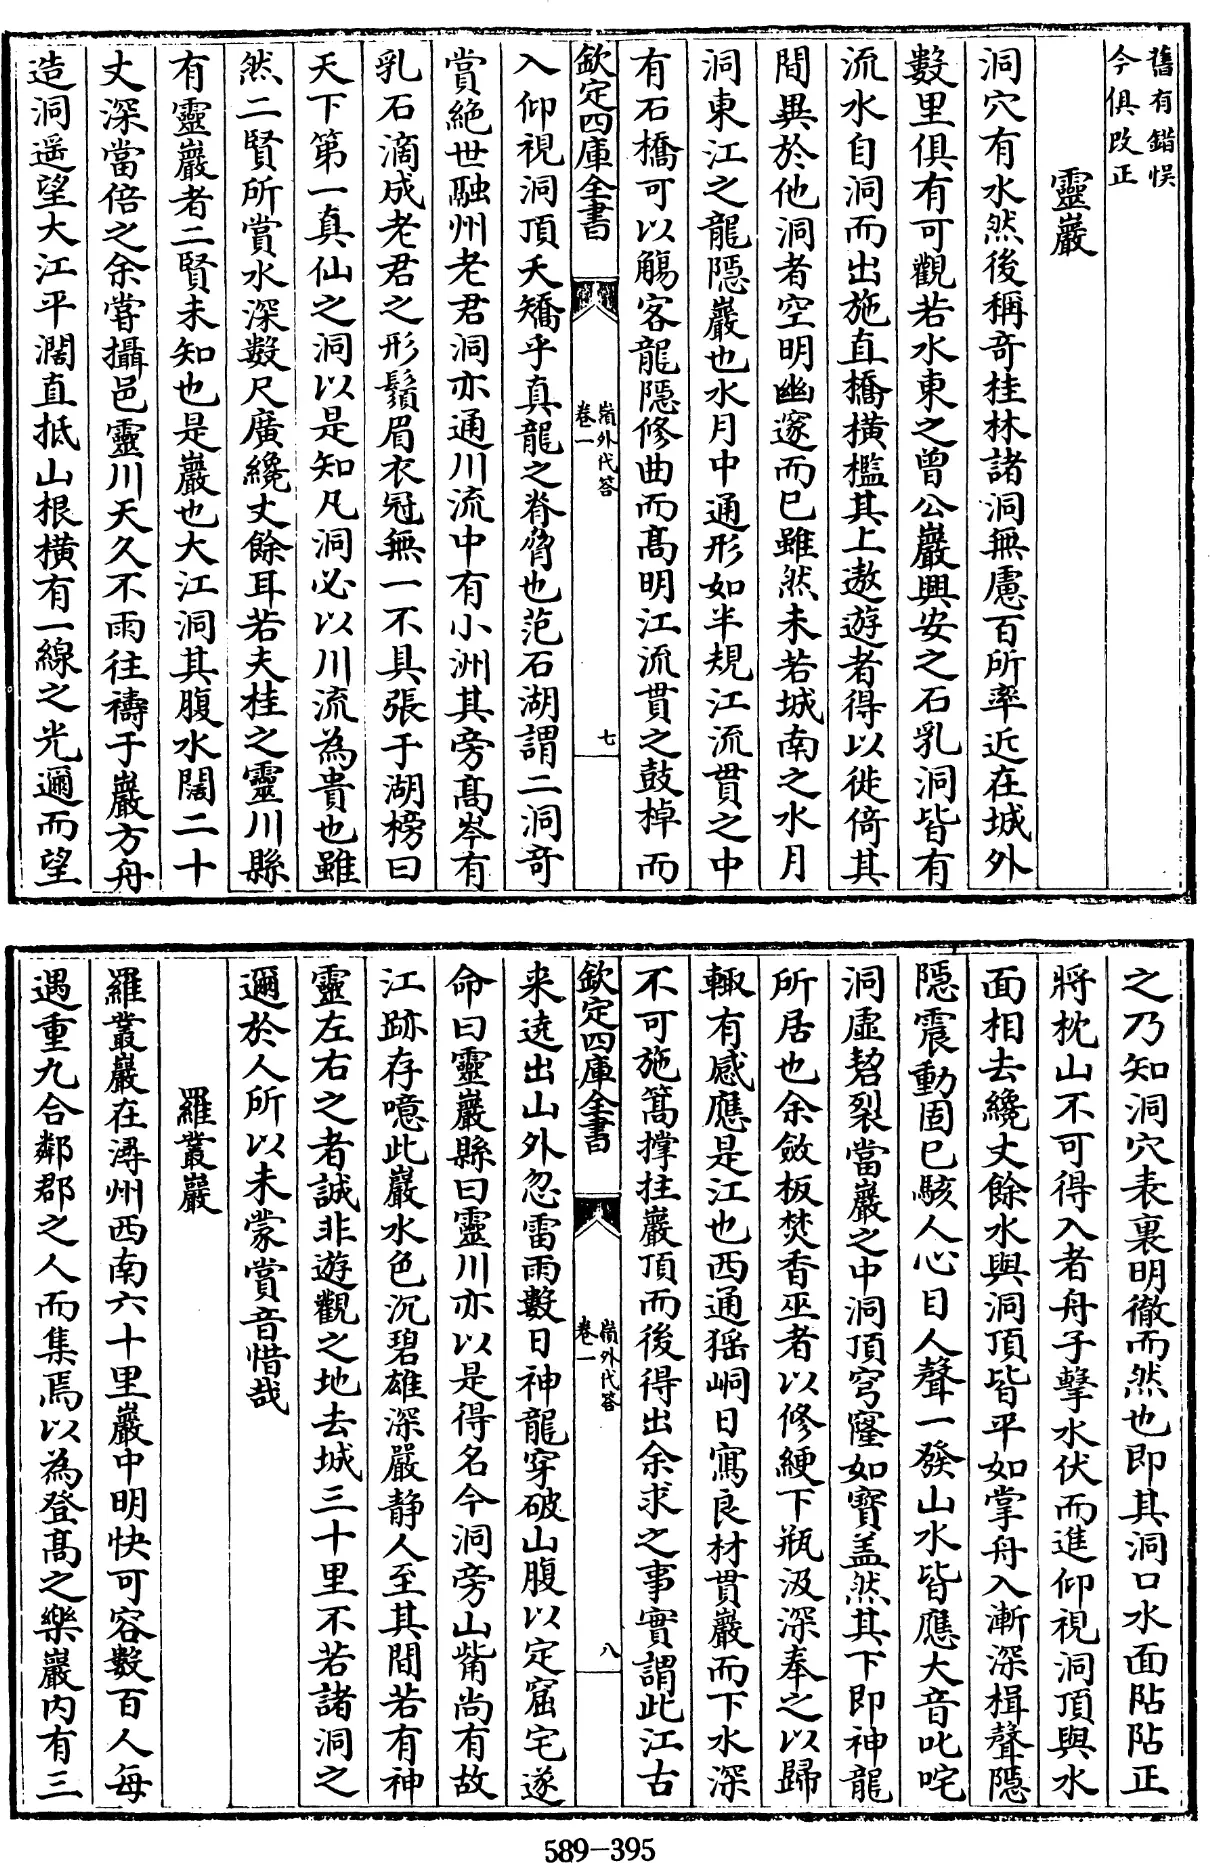 舊有錯悞
今俱改正
靈巖
洞穴有水然後稱奇桂林諸洞無慮百所率近在城外
數里俱有可觀若水東之曾公巖興安之石乳洞皆有
流水自洞而出施直橋橫檻其上遨遊者得以徙倚其
間異於他洞者空明幽邃而已雖然未若城南之水月
洞東江之龍隱巖也水月中通形如半規江流貫之中
有石橋可以觴客龍隱修曲而髙明江流貫之鼓棹而
欽定四庫全書
嶺外代答
卷一
七
入仰視洞頂夭矯乎真龍之脊脅也范石湖謂二洞奇
賞絶世融州老君洞亦通川流中有小洲其旁髙岑有
乳石滴成老君之形鬚眉衣冠無一不具張于湖榜曰
天下第一真仙之洞以是知凡洞必以川流為貴也雖
然二賢所賞水深數尺廣纔丈餘耳若夫桂之靈川縣
有靈巖者二賢未知也是巖也大江洞其腹水闊二十
丈深當倍之余嘗攝邑靈川天久不雨往禱于巖方舟
造洞遥望大江平濶直抵山根橫有一線之光邇而望
之乃知洞穴表裏明徹而然也即其洞口水面阽阽正
將枕山不可得入者舟子擊水伏而進仰視洞頂與水
面相去纔丈餘水與洞頂皆平如掌舟入漸深楫聲隱
隱震動固已駭人心目人聲一發山水皆應大音叱咤
洞虛砮裂當巖之中洞頂穹窿如寶盖然其下即神龍
所居也余斂板焚香巫者以修綆下瓶汲深奉之以歸
輙有感應是江也西通猺峒日寫良材貫巖而下水深
不可施篙撑拄巖頂而後得出余求之事實謂此江古
欽定四庫全書
嶺外代答
卷一
八
来遶出山外忽雷雨數日神龍穿破山腹以定窟宅遂
命曰靈巖縣曰靈川亦以是得名今洞旁山觜尚有故
江跡存噫此巖水色沉碧雄深嚴静人至其間若有神
靈左右之者誠非遊觀之地去城三十里不若諸洞之
邇於人所以未蒙賞音惜哉
羅叢巖
羅叢巖在潯州西南六十里巖中明快可容數百人每
遇重九合鄰郡之人而集焉以為登髙之樂巖内有三
589-395